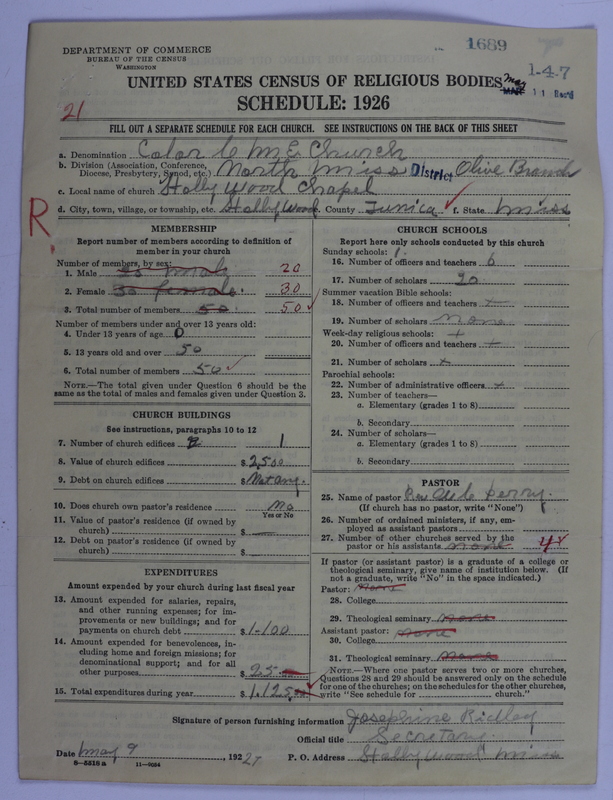 DEPARTMENT OF COMMERCE
BUREAU OF THE CENSUS
WASHINGTON
1689
1-4-7
UNITED STATES CENSUS OF RELIGIOUS BODIES
May
11
SCHEDULE: 1926
21
FILL OUT A SEPARATE SCHEDULE FOR EACH CHURCH. SEE INSTRUCTIONS ON THE BACK OF THIS SHEET
a. Denomination Color C M E Church
b. Division (Association, Conference, Diocese, Presbytery, Synod, etc.) North Miss District Olive Branch
c. Local name of church Holly Wood Chapel
d. City, town, village, or township, etc. Holly Wood e. County Tunica f. State Miss
R.
MEMBERSHIP
Report number of members according to definition of
member in your church
Number of members, by sex:
1. Male 20
2. Female 30
3. Total number of members 50 50
Number of members under and over 13 years old:
4. Under 13 years of age 0
5. 13 years old and over 50
6. Total number of members 50
NOTE.—The total given under Question 6 should be
same as the total of males and females given under Question 3.
CHURCH BUILDINGS
See instructions, paragraphs 10 to 12
7. Number of church edifices 1
8. Value of church edifices $2,500
9. Debt on church edifices $Not any.
10. Does church own pastor's residence No
Yes or No
11. Value of pastor's residence (if owned by
church) $
12. Debt on pastor's residence (if owned by
church) $
EXPENDITURES
Amount expended by your church during last fiscal year
13. Amount expended for salaries, repairs,
and other running expenses; for im-
provements or new buildings; and for
payments on church debt $1-100
14. Amount expended for benevolences, in-
cluding home and foreign missions; for
denominational support; and for all
other purposes $25
15. Total expenditures during year $1,125
CHURCH SCHOOLS
Report here only schools conducted by this church
Sunday schools: 1.
16. Number of officers and teachers 6
17. Number of scholars 20
Summer vacation Bible schools:
18. Number of officers and teachers +
19. Number of scholars none
Week-day religious schools: +
20. Number of officers and teachers +
21. Number of scholars +
Parochial schools:
22. Number of administrative officers +
23. Number of teachers—
a. Elementary (grades 1 to 8)
b. Secondary
24. Number of scholars—
a. Elementary (grades 1 to 8)
b. Secondary
PASTOR
25. Name of pastor Rev. Perry.
(If church has no pastor, write "None")
26. Number of ordained ministers, if any, em-
ployed as assistant pastors
27. Number of other churches served by the
pastor or his assistants none 4
If pastor (or assistant pastor) is a graduate of a college or
theological seminary, give name of institution below. (If
not a graduate, write "No" in the space indicated.)
Pastor: none
28. College
29. Theological seminary none
Assistant pastor: none
30. College
31. Theological seminary none
NOTE.—Where one pastor serves two or more churches,
Questions 28 and 29 should be answered only on the schedule
for one of the churches; on the schedules for the other churches,
write "See schedule for church."
Signature of person furnishing information Josephine Ridley
Official title Secretary
Date May 9, 1927 P. O. Address Holly Wood Miss
8—5518 a 11—9024